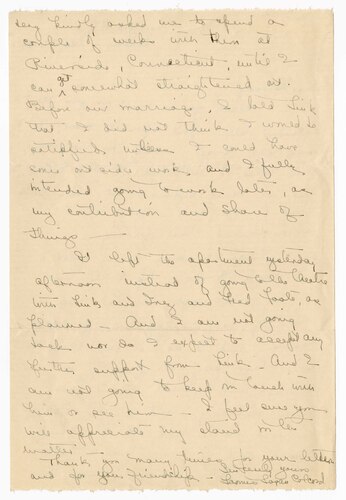 very kindly asked me to spend a
couple of weeks with them at
Riverside, Connecticut, until I
can get somewhat straightened out.
Before our marriage I told Link
that I did not think I would be
satisfied unless I could have
some outside work and I fully
intended going to work later, as
my contribution and share of
things —
I left the apartment yesterday
afternoon instead of going to the theatre
with Link and and Fred as
planned — And I am not going
back nor do I expect to accept any
further support from Link. And I
am not going to keep in touch with
him or see him — I feel sure you
will appreciate my stand in the
matter.
Thank you many times for your letter
and for your friendship — Sincerely yours